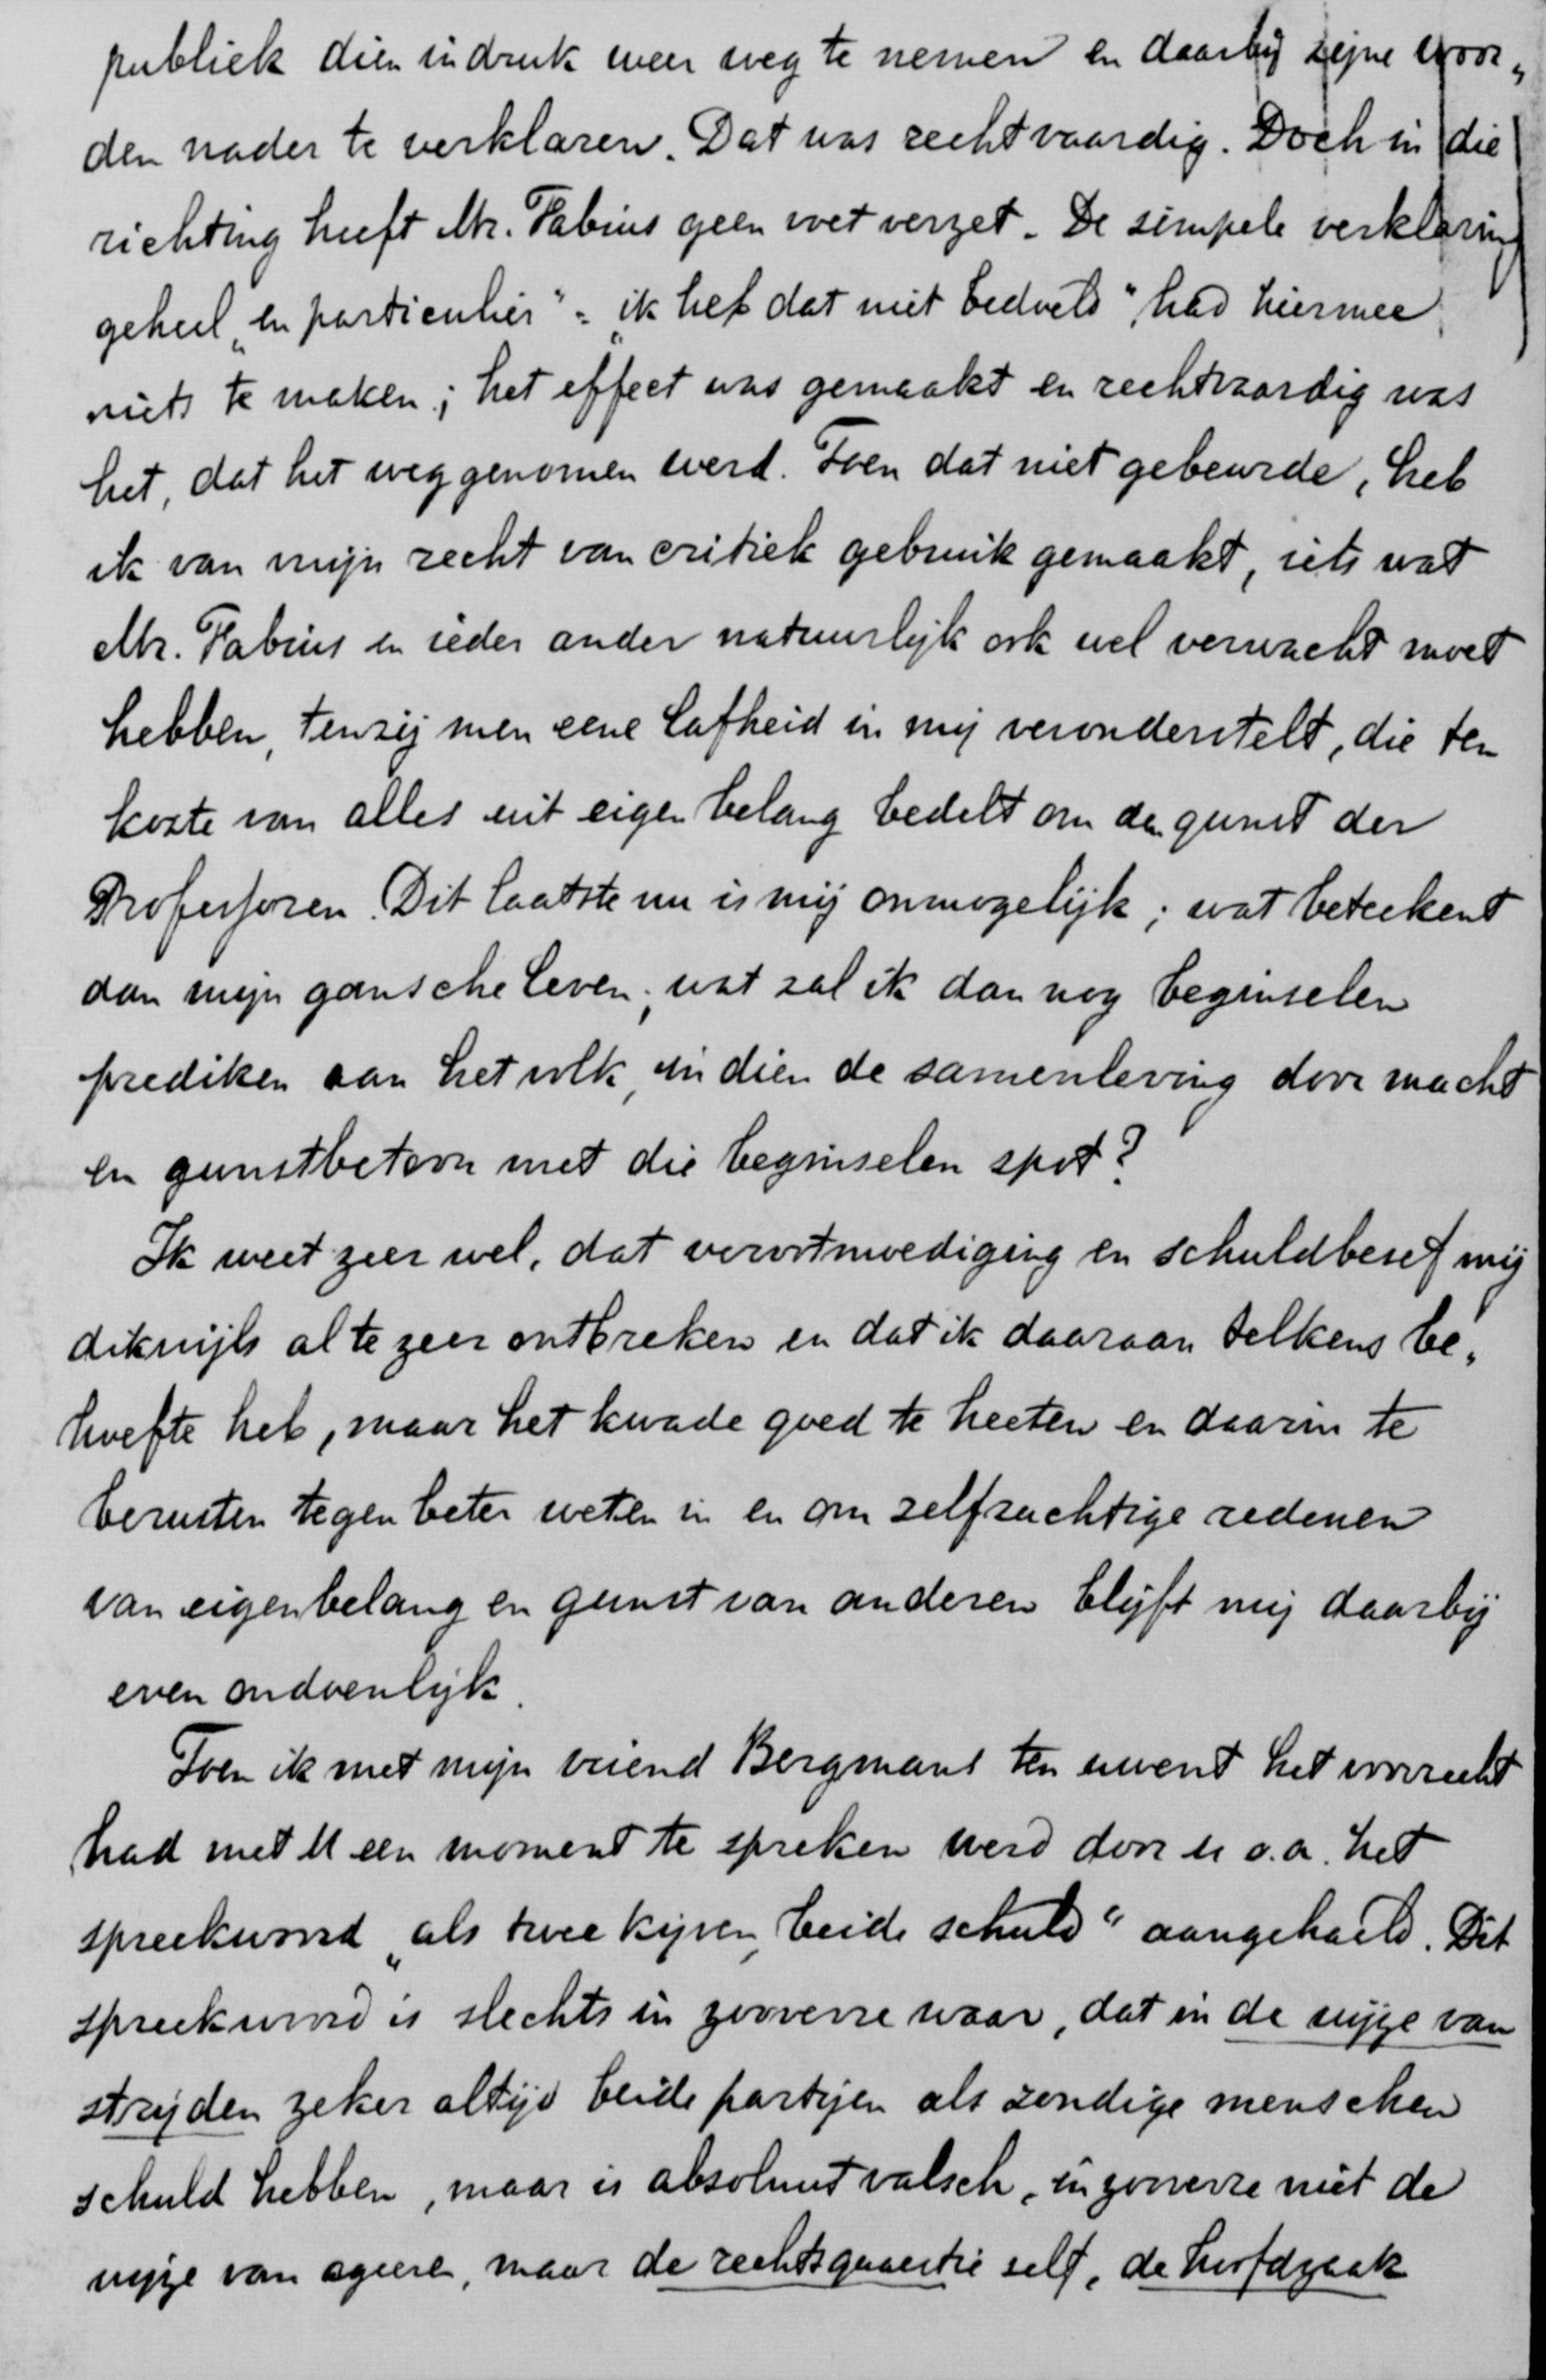 publiek dien indruk weer weg te nemen en daarbij zijne woor„
den nader te verklaren. Dat was rechtvaardig. Doch in die
richting heeft Mr. Fabius geen voet verzet. De simpele verklaring
geheel „en particulier“ = „ik heb dat niet bedoeld“, had hiermee
niets te maken; het effect was gemaakt en rechtvaardig was
het, dat het weggenomen werd. Toen dat niet gebeurde, heb
ik van mijn recht van critiek gebruik gemaakt, iets wat
Mr. Fabius en ieder ander natuurlijk ook wel verwacht moet
hebben, tenzij men eene lafheid in mij veronderstelt, die ten
koste van alles uit eigen belang bedelt om de gunst der
Professoren. Dit laatste nu is mij onmogelijk; wat beteekent
dan mijn gansche leven; wat zal ik dan nog beginselen
prediken aan het volk, indien de samenleving door macht
en gunstbetoon met die beginselen spot?
Ik weet zeer wel, dat verootmoediging en schuldbesef mij
dikwijls al te zeer ontbreken en dat ik daaraan telkens be„
hoefte heb, maar het kwade goed te heeten en daarin te
berusten tegen beter weten in en om zelfzuchtige redenen
van eigenbelang en gunst van anderen blijft mij daarbij
even ondoenlijk.
Toen ik met mijn vriend Bergmans ten uwent het voorrecht
had met U een moment te spreken werd door U o.a. het
spreekwoord „als twee kijven, beide schuld“ aangehaald. Dit
spreekwoord is slechts in zooverre waar, dat in de wijze van
strijden zeker altijd beide partijen als zondige menschen
schuld hebben, maar is absoluut valsch, in zooverre niet de
wijze van ageeren, maar de rechtsquaestie zelf, de hoofdzaak